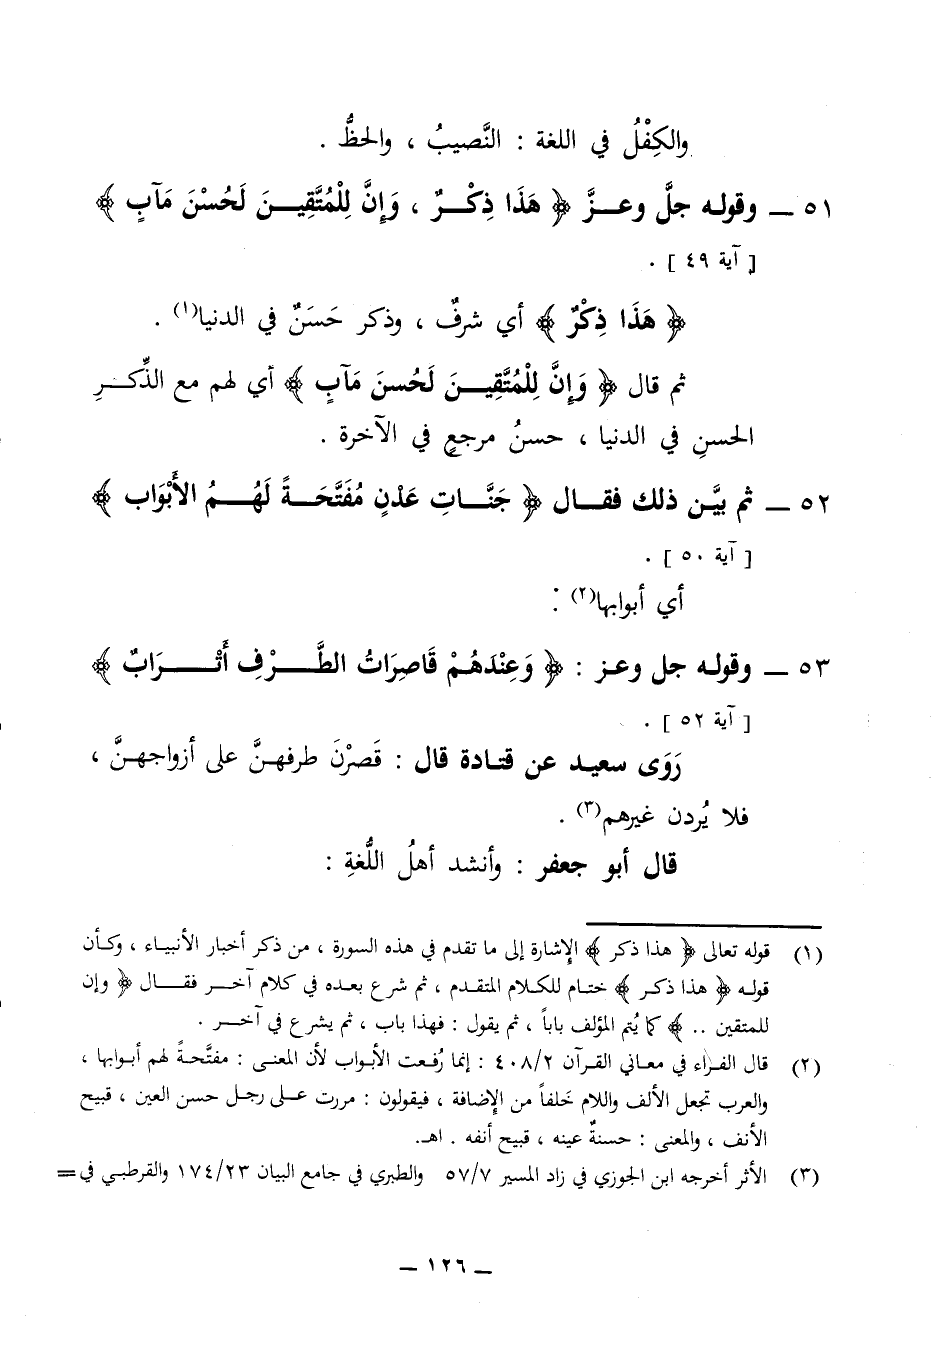 والكِفْلُ في اللغة : النَّصيبُ ، والحظُّ .
٥١ ــ وقوله جلَّ وعــزَّ ﴿ هَذَا ذِكْــرٌ ، وَإِنَّ لِلْمُتَّقِيــنَ لَحُسْنَ مَآبٍ ﴾
[ آية ٤٩ ] .
﴿ هَذَا ذِكْرٌ ﴾ أي شرفٌ ، وذكر حَسَنٌ في الدنيا(١) .
ثم قال ﴿ وَإِنَّ لِلْمُتَّقِيــنَ لَحُسنَ مَآبٍ ﴾ أي لهم مع الذِّكــرِ
الحسنِ في الدنيا ، حسنُ مرجعٍ في الآخرة .
٥٢ ــ ثم بيَّـن ذلك فقــال ﴿ جَنَّــاتِ عَدْنٍ مُفَتَّحَــةً لَهُــمُ الأَبْوَاب ﴾
[ آية ٥٠ ] .
أي أبوابها(٢) :
٥٣ ــ وقولـه جل وعـز : ﴿ وَعِنْدَهُمْ قَاصِرَاتُ الطَّــرْفِ أَتْــرَابٌ ﴾
[ آية ٥٢ ] .
رَوَى سعيـد عن قتـادة قال : قَصرْنَ طرفهـنَّ على أزواجهـنَّ ،
فلا يُردن غيرهم(٣) .
قال أبو جعفر : وأنشد أهلُ اللُّغةِ :
(١) قوله تعالى ﴿ هذا ذكر ﴾ الإشارة إلى ما تقدم في هذه السورة ، من ذكر أخبار الأنبياء ، وكـأن
قولـه ﴿ هذا ذكـر ﴾ ختـام للكـلام المتقدم ، ثم شرع بعده في كلام آخــر فقــال ﴿ وإن
للمتقين .. ﴾ كما يُتم المؤلف باباً ، ثم يقول : فهذا باب ، ثم يشرع في آخــر .
(٢) قال الفـراء في معـاني القـرآن ٤٠٨/٢ : إنما رُفعـت الأبـواب لأن المعنـى : مفتَّحـةً لهم أبـوابها ،
والعرب تجعل الألف واللام خَلفاً من الإضافة ، فيقولون : مررت علـى رجـل حسن العين ، قبيح
الأنف ، والمعنى : حسنةٌ عينه ، قبيح أنفه . اهـ.
(٣) الأثر أخرجه ابن الجوزي في زاد المسير ٥٧/٧ والطبري في جامع البيان ١٧٤/٢٣ والقرطبـي في =
ــ ١٢٦ ــ